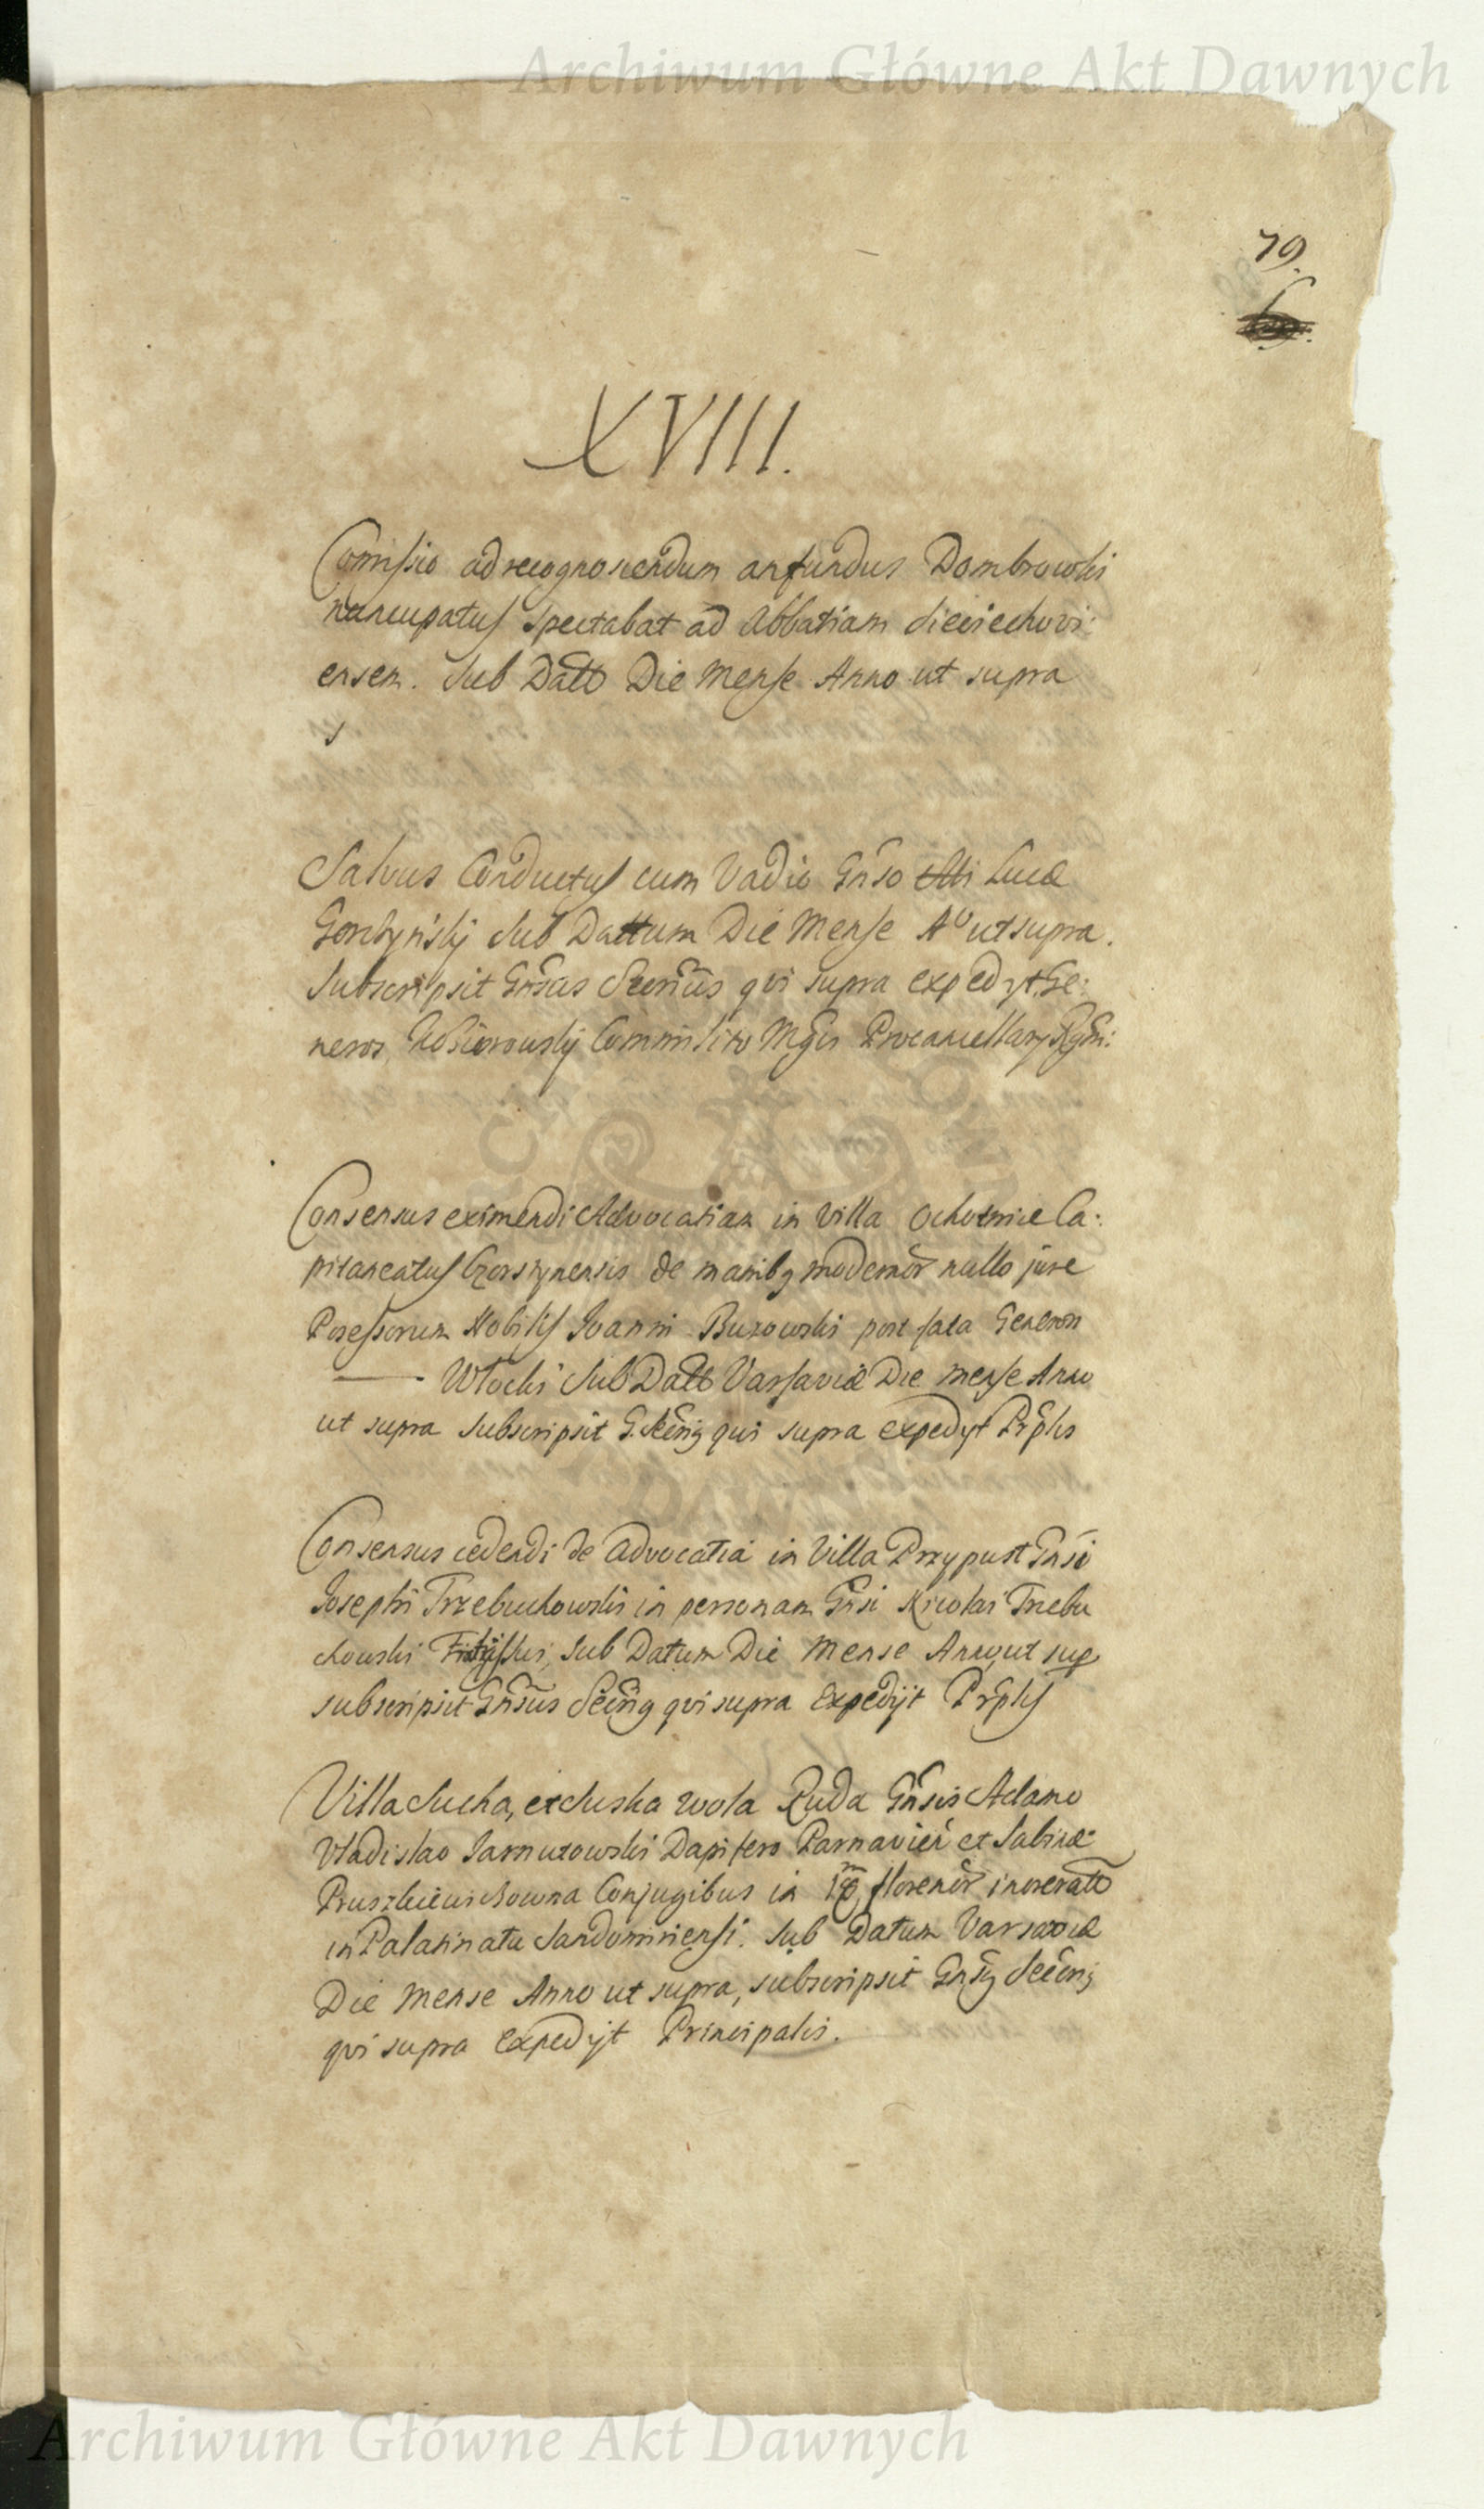 Archiwum Główne Akt Dawnych
79.
XVIII.
Comissio ad recognoscendum an fundus Dombrowski
nuncupatus Spectabat ad Abbatiam Sieciechovi:
ensem. Sub Datt Die Mense Anno ut supra
Salvus Conductus cum Vadio Gnso Lucæ
Sub Dattum Die Mense A⁰ ut supra.
Subscripsit qui supra expedyt Ge:
neros Procancellary
Consensus eximendi Advocatiam in Villa Ochotnice Ca:
pitaneatus Czorstynensis de manibq modernor nullo jure
Possessorum Nobilis Joanni Buzowski post fata Generon
Wlocki Sub Datt Varsaviæ Die mense Anno
ut supra Subscripsit G. qui supra expedyt Prplis
Consensus cedendi de Advocatia in Villa Przypust Gnsi
Josephi Trzebuchowski in personam Gnsi Nicolai Trzebu
chowski Sub Datum Die Mense Anno, ut sup
subscripsit Gnsus qui supra Expedijt Prplis
Villa Sucha, et Suska wola Ruda Gnsis Adamo
Vladislao Jarnutowski Dapifero Parnavien et Sabinæ
Conjugibus in florenor inorerato
in Palatinatu Sandomiriensi. Sub Datum Varsaviæ
Die Mense Anno ut supra, subscripsit
qui supra Expedijt Principalis.
Archiwum Główne Akt Dawnych